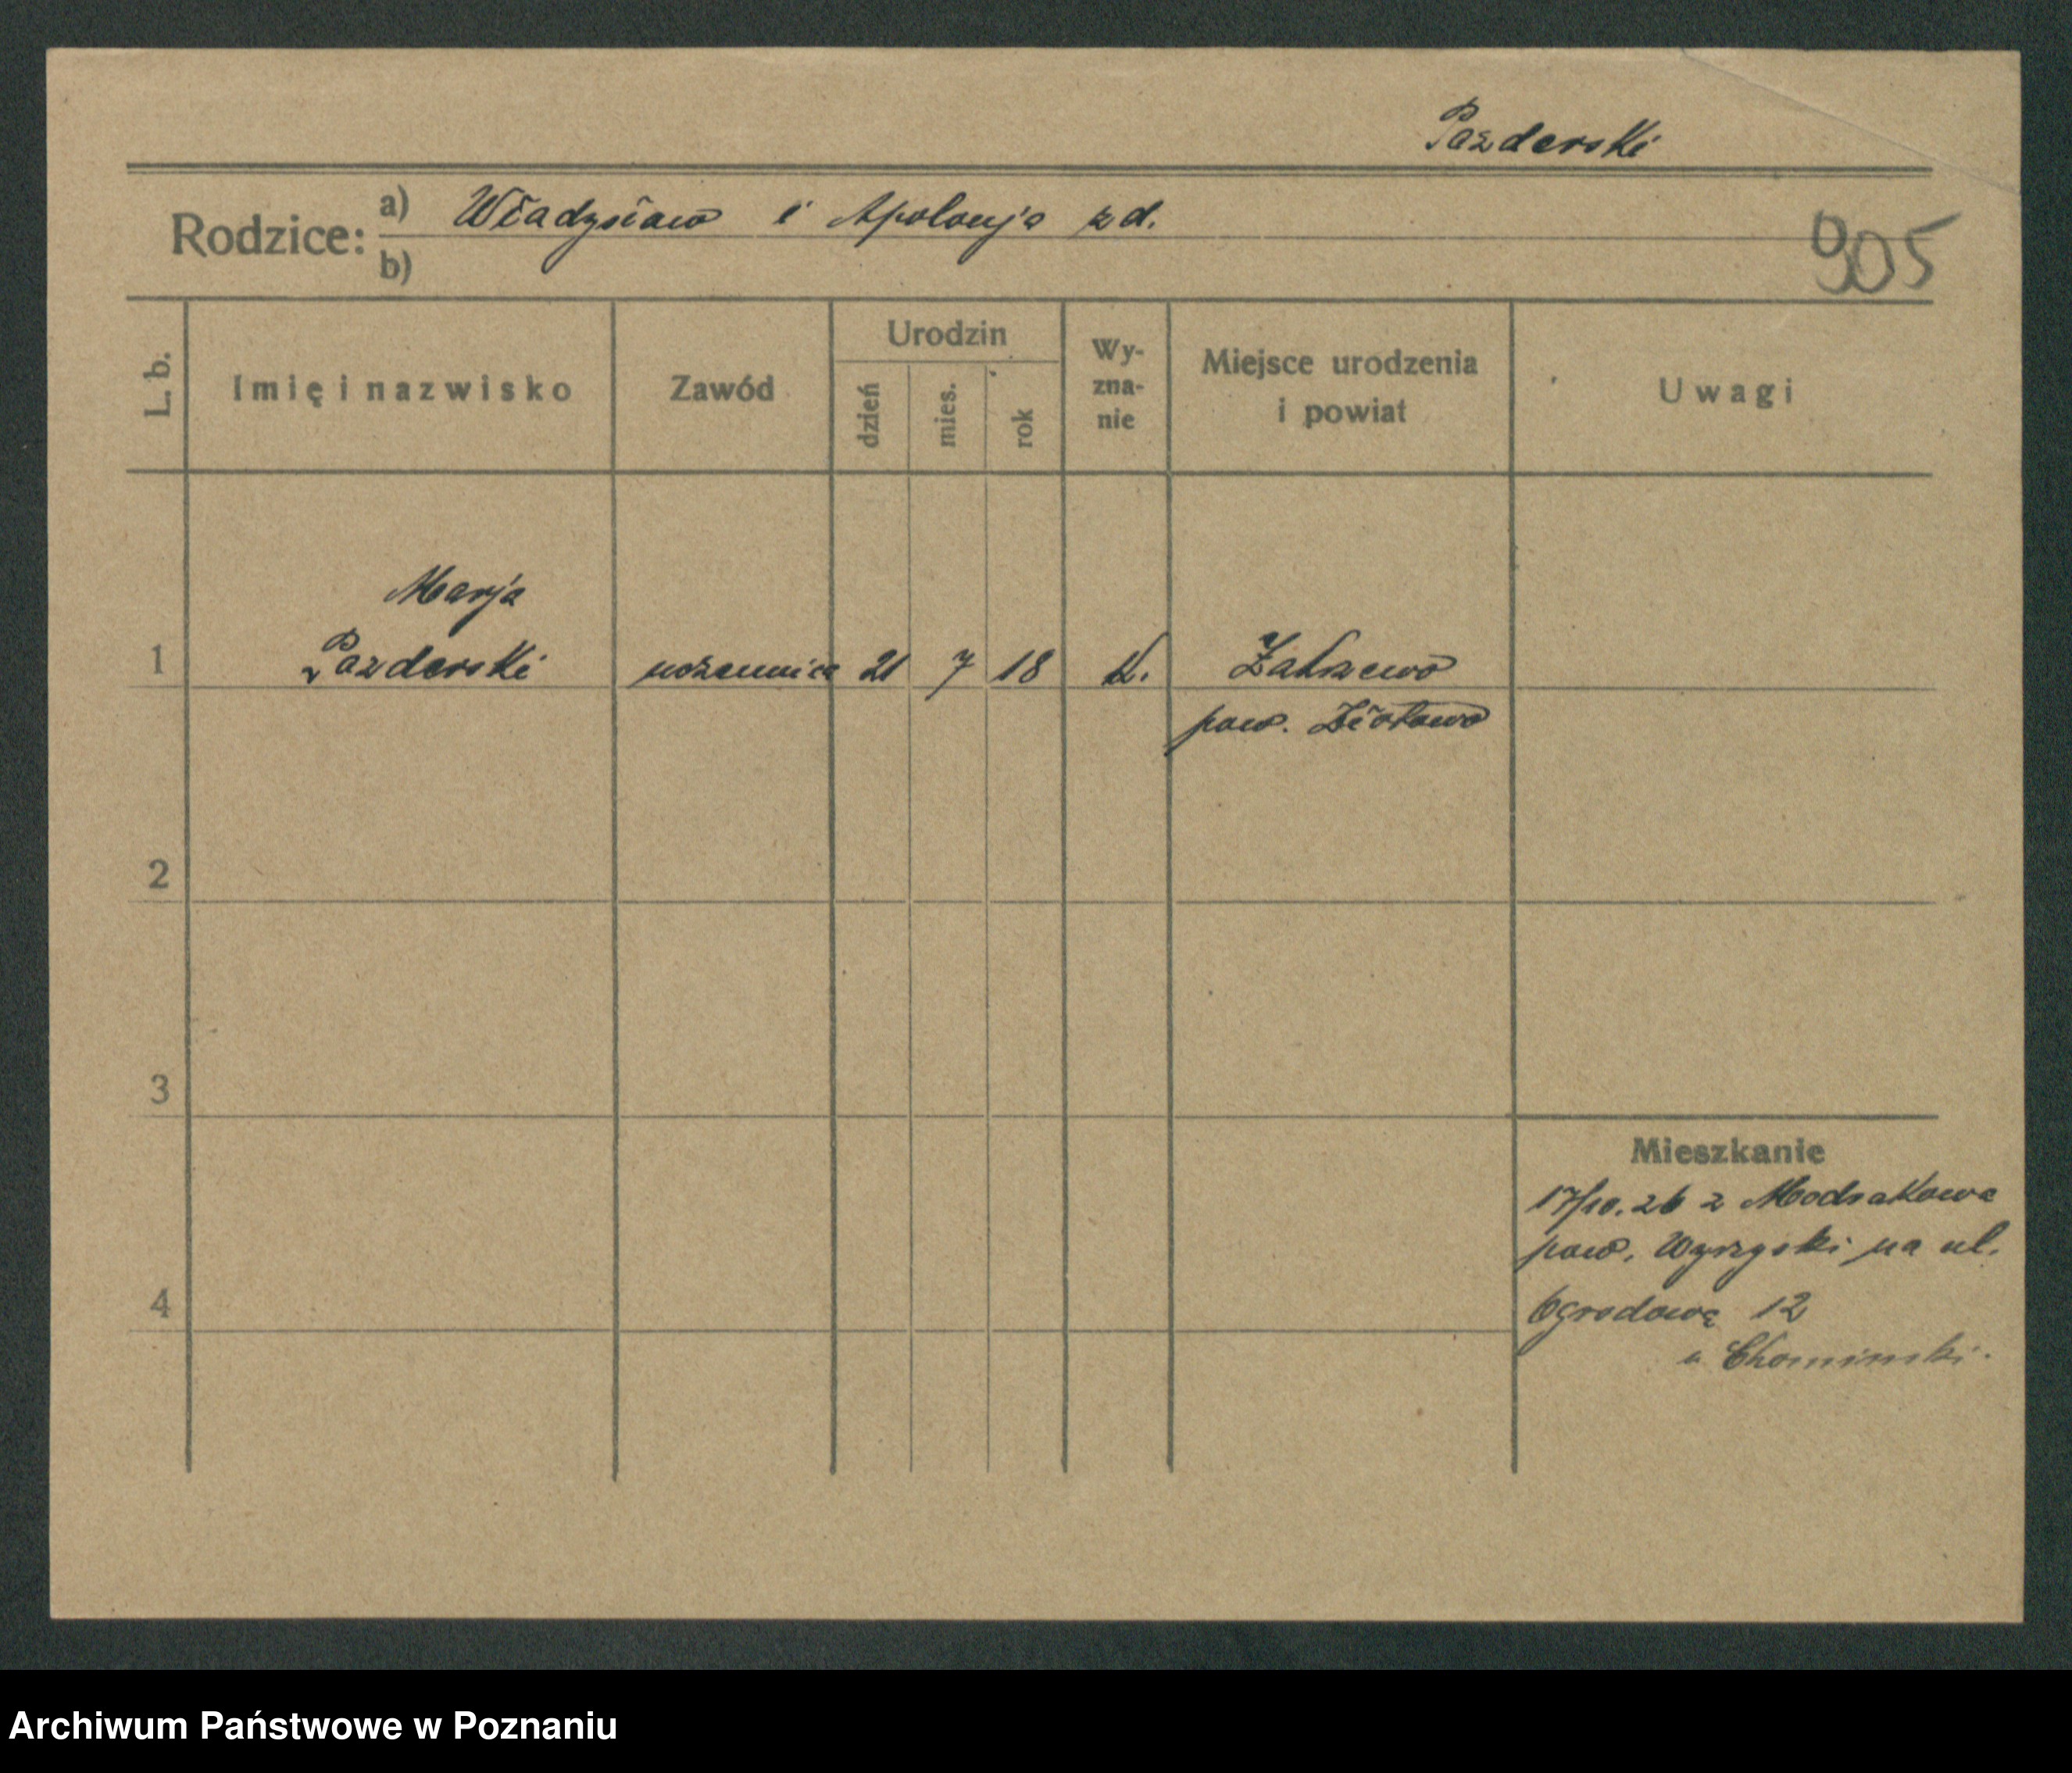 Pazderski
Rodzice: a) Władysław i Apolonja zd.
b)
905
L. b.
Imię i nazwisko
Zawód
Urodzin
dzień
mies.
rok
Wy-
zna-
nie
Miejsce urodzenia
i powiat
Uwagi
Marja
1 Pazderski uczennica 21 7 18 k. Zakrzewo
pow. Złotowo
2
3
Mieszkanie
17/10. 26 z Modrakowa
pow. Wyrzyski na ul.
4 Ogrodową 12
u Chominski.
Archiwum Państwowe w Poznaniu